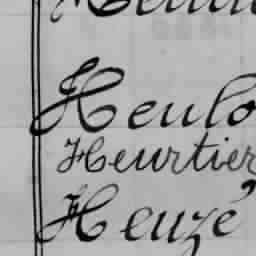 Heulo
Heurtier
Heuzé